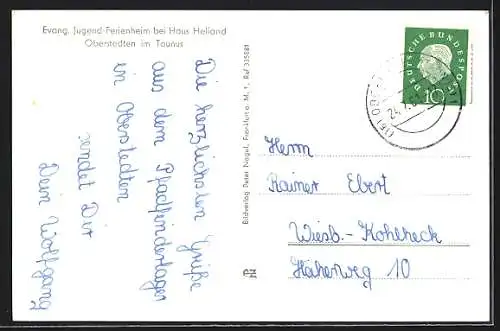 Evang. Jugend-Ferienheim bei Haus Heliand
Oberstedten im Taunus
Die herzlichsten Grüße
aus dem Pfadfinderlager
in Oberstedten
sendet Dir
Dein Wolfgang
Bildverlag Peter Nagel, Frankfurt a. M. 1, Ruf 335081
DEUTSCHE BUNDESPOST
10
Herrn
Rainer Ebert
Wiesb.-Kohlheck
Häherweg 10